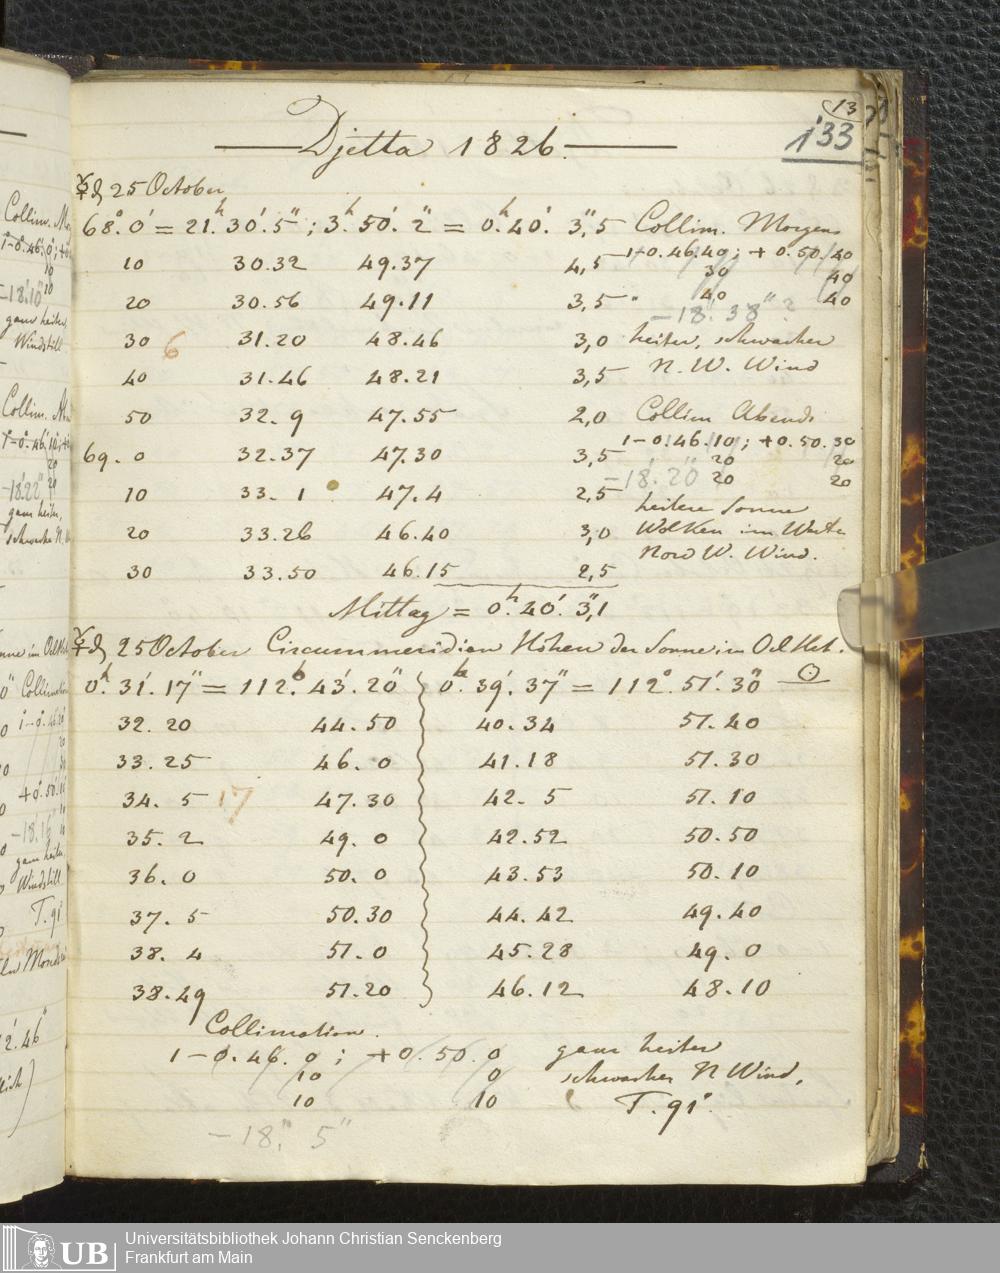 13
133
Djetta 1826.
☿ d 25 October
68°. 0' = 21.h 30.' 5" ; 3.h 50.' 2" = 0.h 40.' 3",5 Collim. Morgens
10 30.32 49.37 4,5 1-0.46.40; + 0.50.40
30 40
20 30.56 49.11 3,5 40 40
-18'. 38" ?
30 6 31.20 48.46 3,0 heiter, schwacher
40 31.46 48.21 3,5 N. W. Wind
50 32. 9 47.55 2,0 Collim Abends
69. 0 32.37 47.30 3,5 1-0.46.10; +0.50.30
20 20
-18'. 20" 20 20
10 33. 1 47.4 2,5 heitere Sonne
20 33.26 46.40 3,0 Wolken im Weste
Nord W. Wind.
30 33.50 46.15 2,5
Mittag = 0.h 40.' 3",1
☿ d 25 October Circummeridian Höhen der Sonne im Oel Hot.
0.h 31.' 17" = 112.° 43.' 20" 0.h 39.' 37" = 112°. 51.' 30" ⊙
32. 20 44.50 40.34 51.40
33.25 46. 0 41.18 51.30
34. 5 17 47.30 42. 5 51. 10
35. 2 49. 0 42.52 50.50
36. 0 50. 0 43.53 50. 10
37. 5 50.30 44.42 49.40
38. 4 51. 0 45.28 49. 0
38.49 51.20 46.12 48.10
Collimation.
1 - 0.46. 0 ; + 0. 50. 0 ganz heiter
10 0 schwacher N Wind,
10 10 T. 91°.
-18'. 5"
Universitätsbibliothek Johann Christian Senckenberg
UB Frankfurt am Main